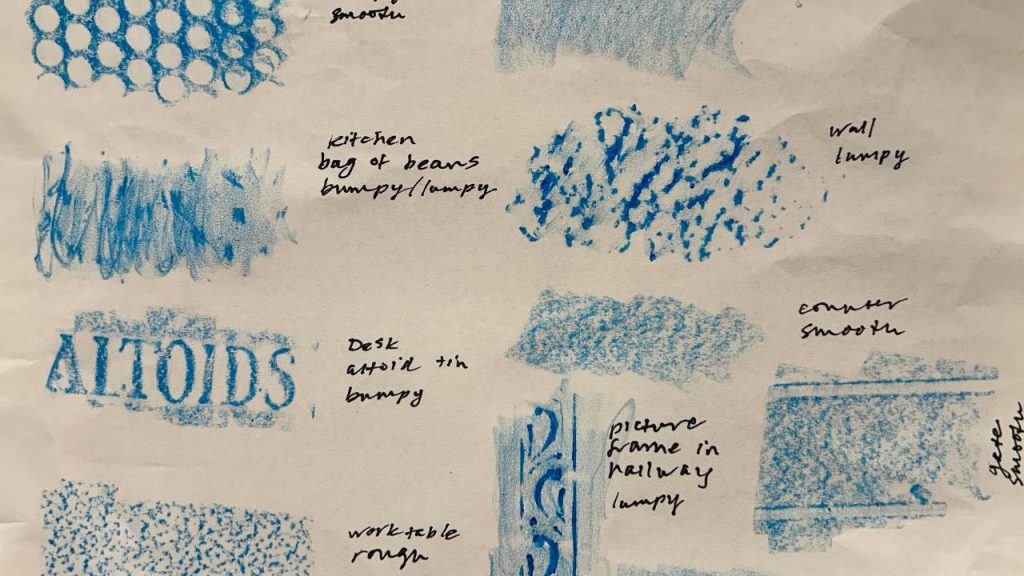 smooth
kitchen
bag of beans
bumpy/lumpy
wall
lumpy
ALTOIDS
Desk
altoid tin
bumpy
counter
smooth
picture
frame in
hallway
lumpy
gate
smooth
work table
rough